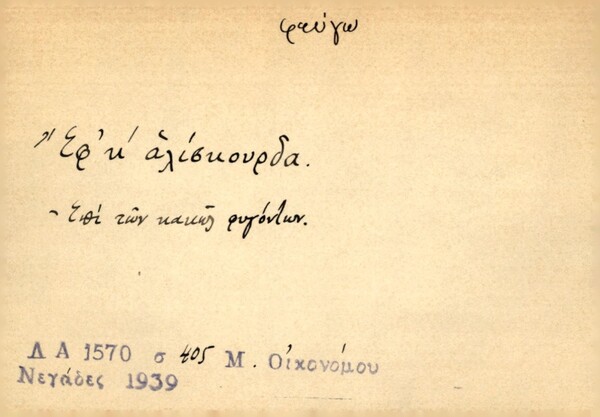 φεύγω
Ἔφ'κ' ἀλίσκουρδα.
- Ἐπὶ τῶν κακῶς φυγόντων.
Λ Α 1570 σ 405 Μ. Οἰκονόμου
Νεγάδες 1939